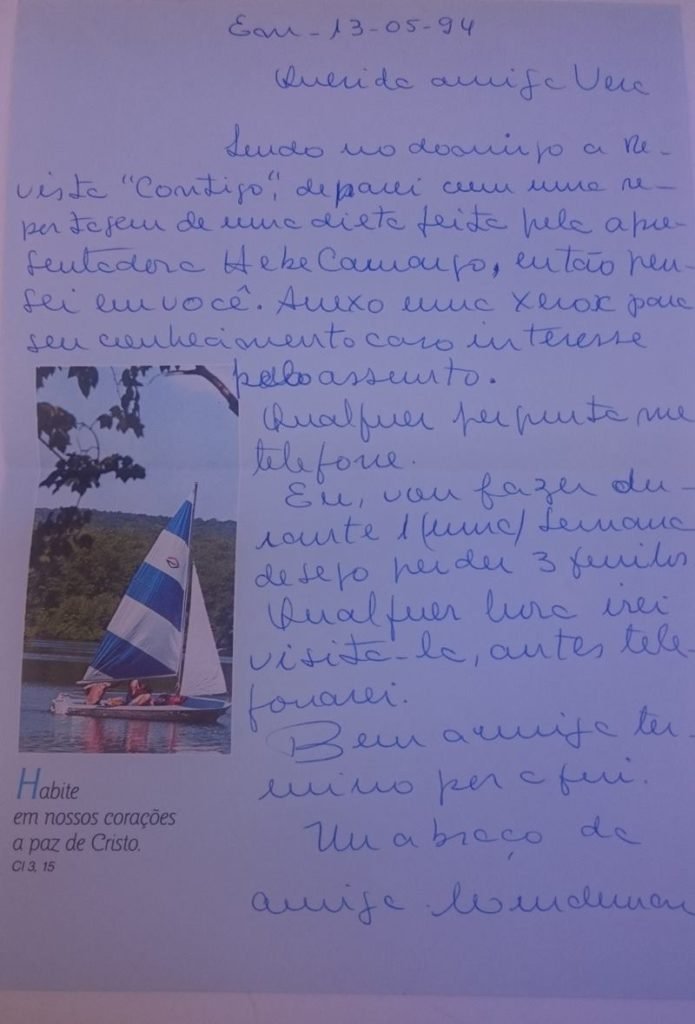 13-05-94
Querida amiga Vera
Lendo no domingo a re-
vista "Contigo", deparei com uma re-
portagem de uma dieta feita pela apre-
sentadora Hebe Camargo, então pen-
sei em você. Anexo uma xerox para
seu conhecimento caso interesse
pelo assunto.
Qualquer pergunta me
telefone.
Eu, vou fazer du-
rante 1 (uma) semana
desejo perder 3 quilos
Qualquer hora irei
visita-la, antes tele-
fonarei.
Bem amiga ter-
mino por aqui.
Um abraço da
amiga
Habite
em nossos corações
a paz de Cristo.
Cl 3, 15